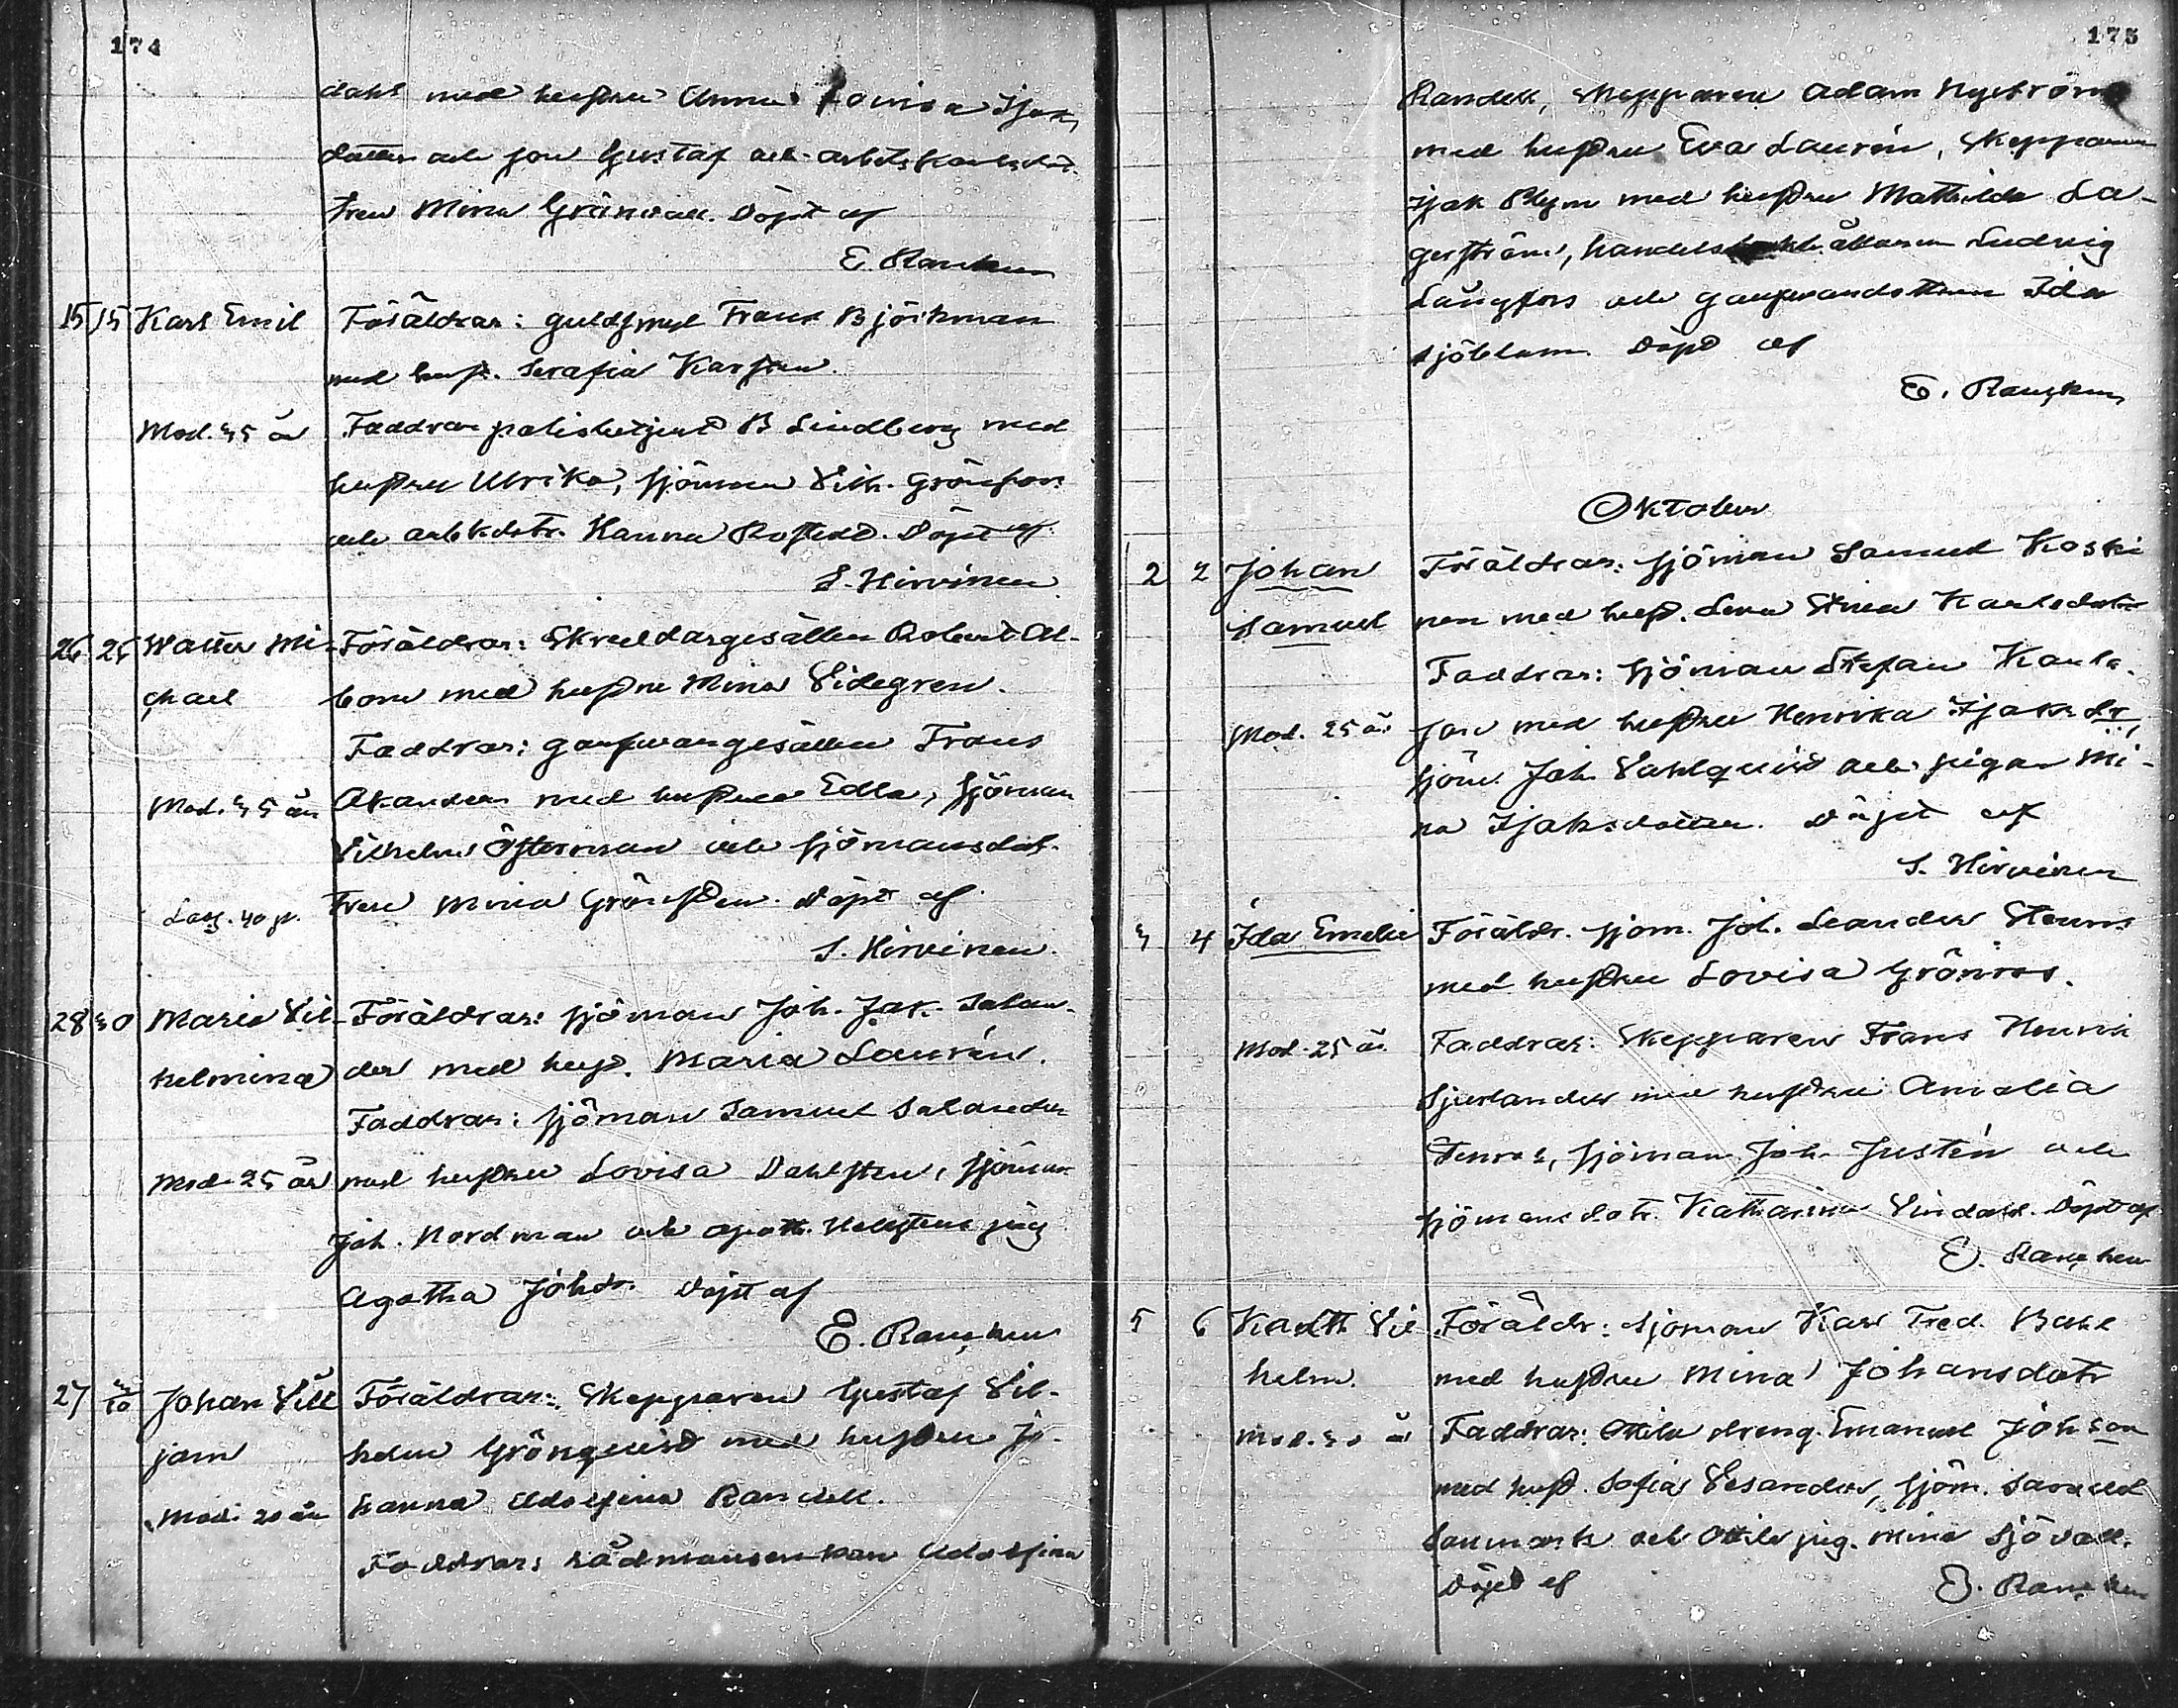 174
dahl med hustru Anna Lovisa Isaks
dotter och son Gustaf och arbetskarlsdot-
tren Mina Grönvall. Döpt af
E. Rancken
15 15 Karl Emil Föräldrar: guldsmed Frans Björkman
med hust. Serafia Karsten.
Mod. 35 år Faddrar polisbetjent B Lindberg med
hustru Ulrika, sjöman Vilh. Grönfors
och arbkdotr. Hanna Rostedt. Döpt af
S. Hirvinen
26 26 Walter Mi- Föräldrar: Skreddargesällen Robert Al-
chael bom med hustru Mina Videgren.
Faddrar: garfvaregesällen Frans
Mod. 35 år Akander med hustru Edla, sjöman
Vilhelm Österman och sjömansdot-
Lösg. 40 p. tren Mina Grönsten. Döpt af
S. Hirvinen.
28 30 Maria Vil- Föräldrar: sjöman Joh. Jak. Salan-
helmina der med hust. Maria Laurén.
Faddrar: sjöman Samuel Salander
Mod 25 år med hustru Lovisa Dahlsten, sjöman
Joh. Nordman och apoth. Hellstens pig
Agatha Johdr. Döpt af
E. Rancken
27 3/10 Johan Vill Föräldrar: Skepparen Gustaf Vil-
jam helm Grönquist med hustru Jo-
Mod. 20 år hanna Adolfina Randell.
Faddrar: rådmansenkan Adolfina
175
Randell, Skepparen Adam Nyström
med hustru Eva Laurén, Skepparen
Isak Rhym med hustru Mathilda La-
gerström, handelsållaren Ludvig
Långfors och garfvaredottren Ida
Sjöblom. Döpt af
E. Rancken
Oktober
2 2 Johan Föräldrar: sjöman Samuel Koski
Samuel nen med hust. Lena Stina Karlsdotr
Faddrar: sjöman Stefan Karls-
Mod. 25 år son med hustru Henrika Isaksdr,
sjöm. Joh. Dahlquist och pigan Mi-
na Isaksdotter. Döpt af
S. Hirvinen
3 4 Ida Emelie Föräldr. sjöm. Joh. Leander Stenros
med hustru Lovisa Grönros.
Mod. 25 år Faddrar: Skepparen Frans Henrik
Sjurlander med hustru Amalia
Stenros, sjöman Joh. Justén och
sjömansdotr. Katharina Lindahl. Döpt af
E. Rancken
5 6 Karl Vil Föräldr: sjöman Karl Fred. Bakl
helm. med hustru Mina Johansdotr
Mod. 30 år Faddrar: Ottila dreng. Emanuel Johson
med hust. Sofia Vesander, sjöm. Samuel
Sanmark och Ottila pig. Mina Sjövall.
Döpt af E. Rancken